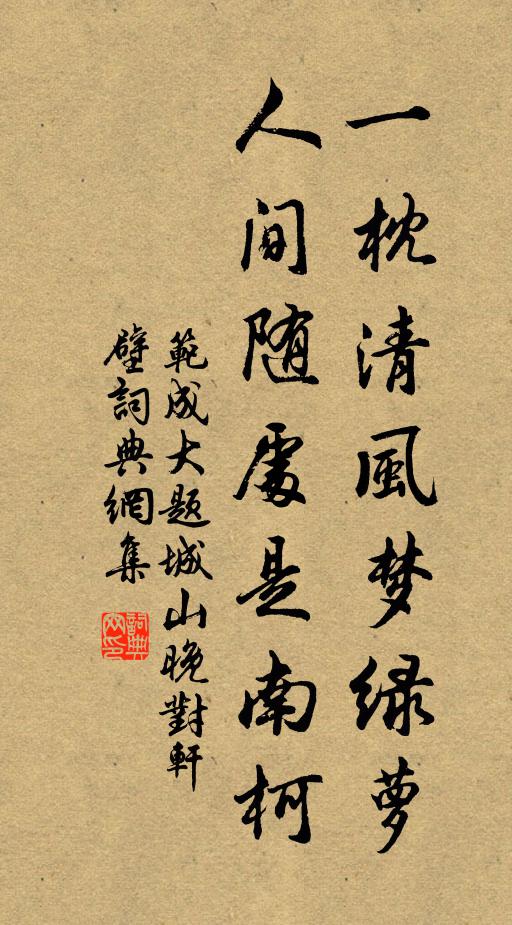 一枕清風梦绿萝
人间随處是南柯
範成大题城山晚對軒
壁詞典網集
詞典网印